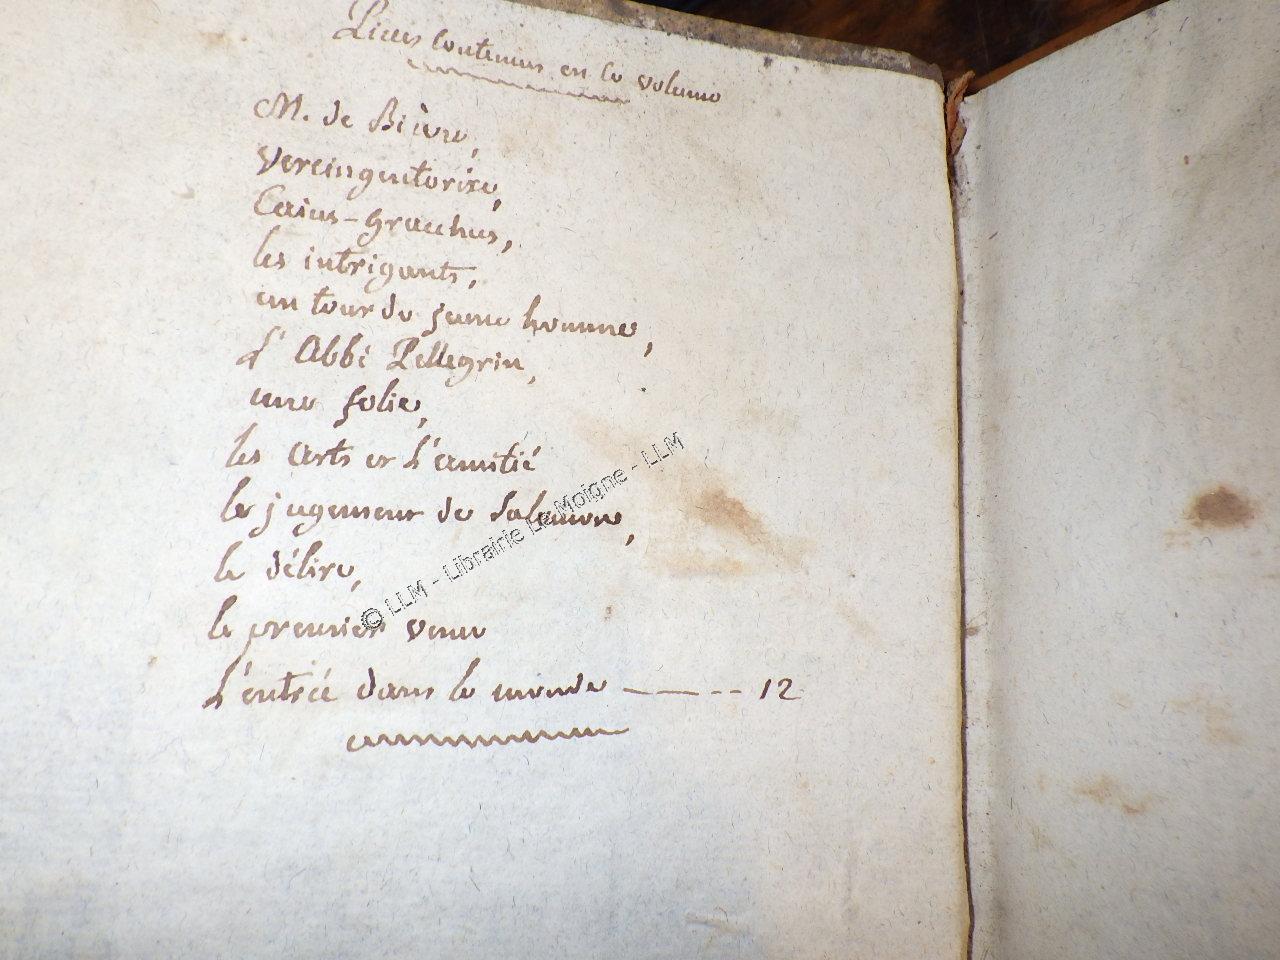 Pièces contenues en ce volume
M. de Bièvre,
Vercingentorixe,
Caius-gracchus,
les intrigants,
un tour de jeune homme,
L'Abbé Pellegrin,
une folie,
les arts et L'amitié
le jugement de Salomon,
le délire,
le premier venu
L'entrée dans le monde ---- 12
© LLM - Librairie Le Moigne - LLM